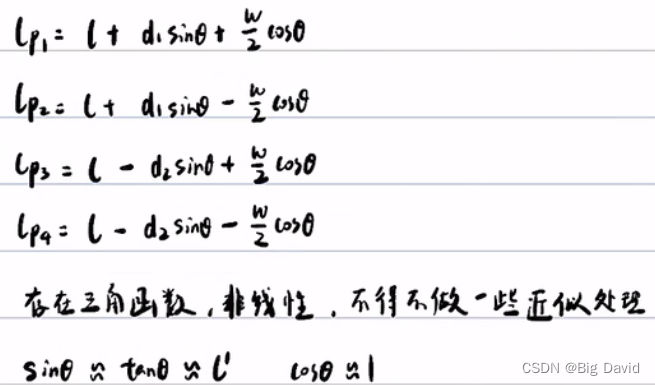 lp₁ = l + d₁sinθ + w/2 cosθ
lp₂ = l + d₁sinθ - w/2 cosθ
lp₃ = l - d₂sinθ + w/2 cosθ
lp₄ = l - d₂sinθ - w/2 cosθ
存在三角函数，非线性，不得不做一些近似处理
sinθ ≈ tanθ ≈ l' cosθ ≈ 1
CSDN @Big David